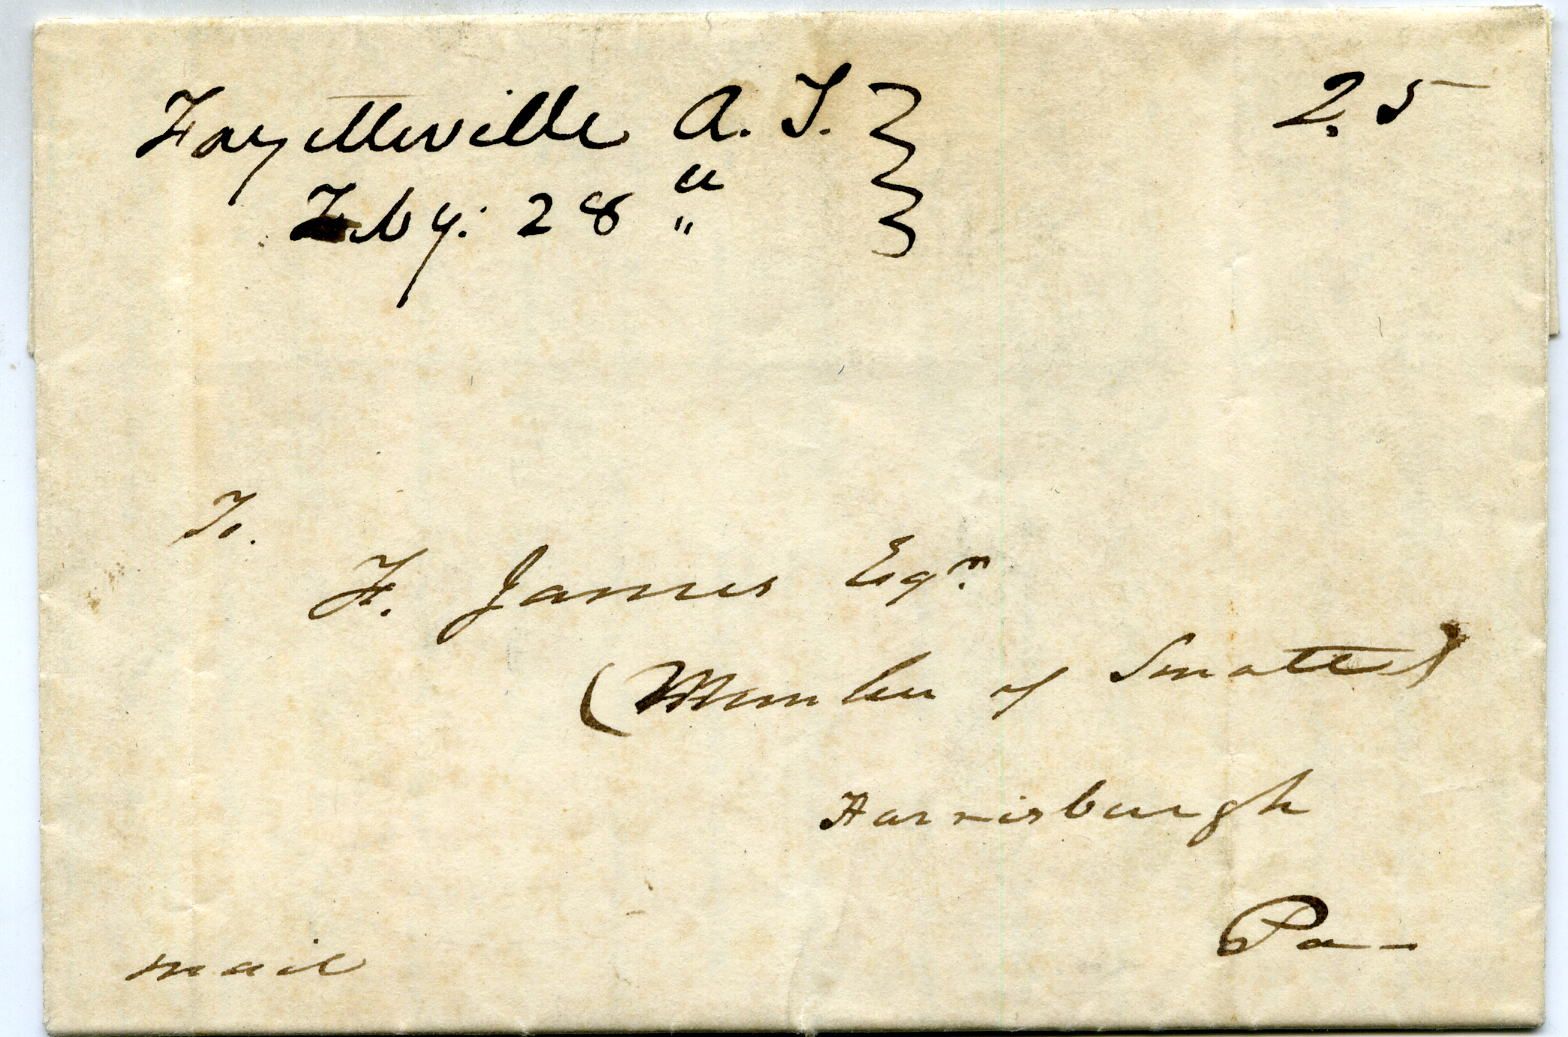 Fayetteville A. T. 25
Feby: 28 "
To.
F. James Esqr.
(Member of Senate)
Harrisburgh
Pa -
mail